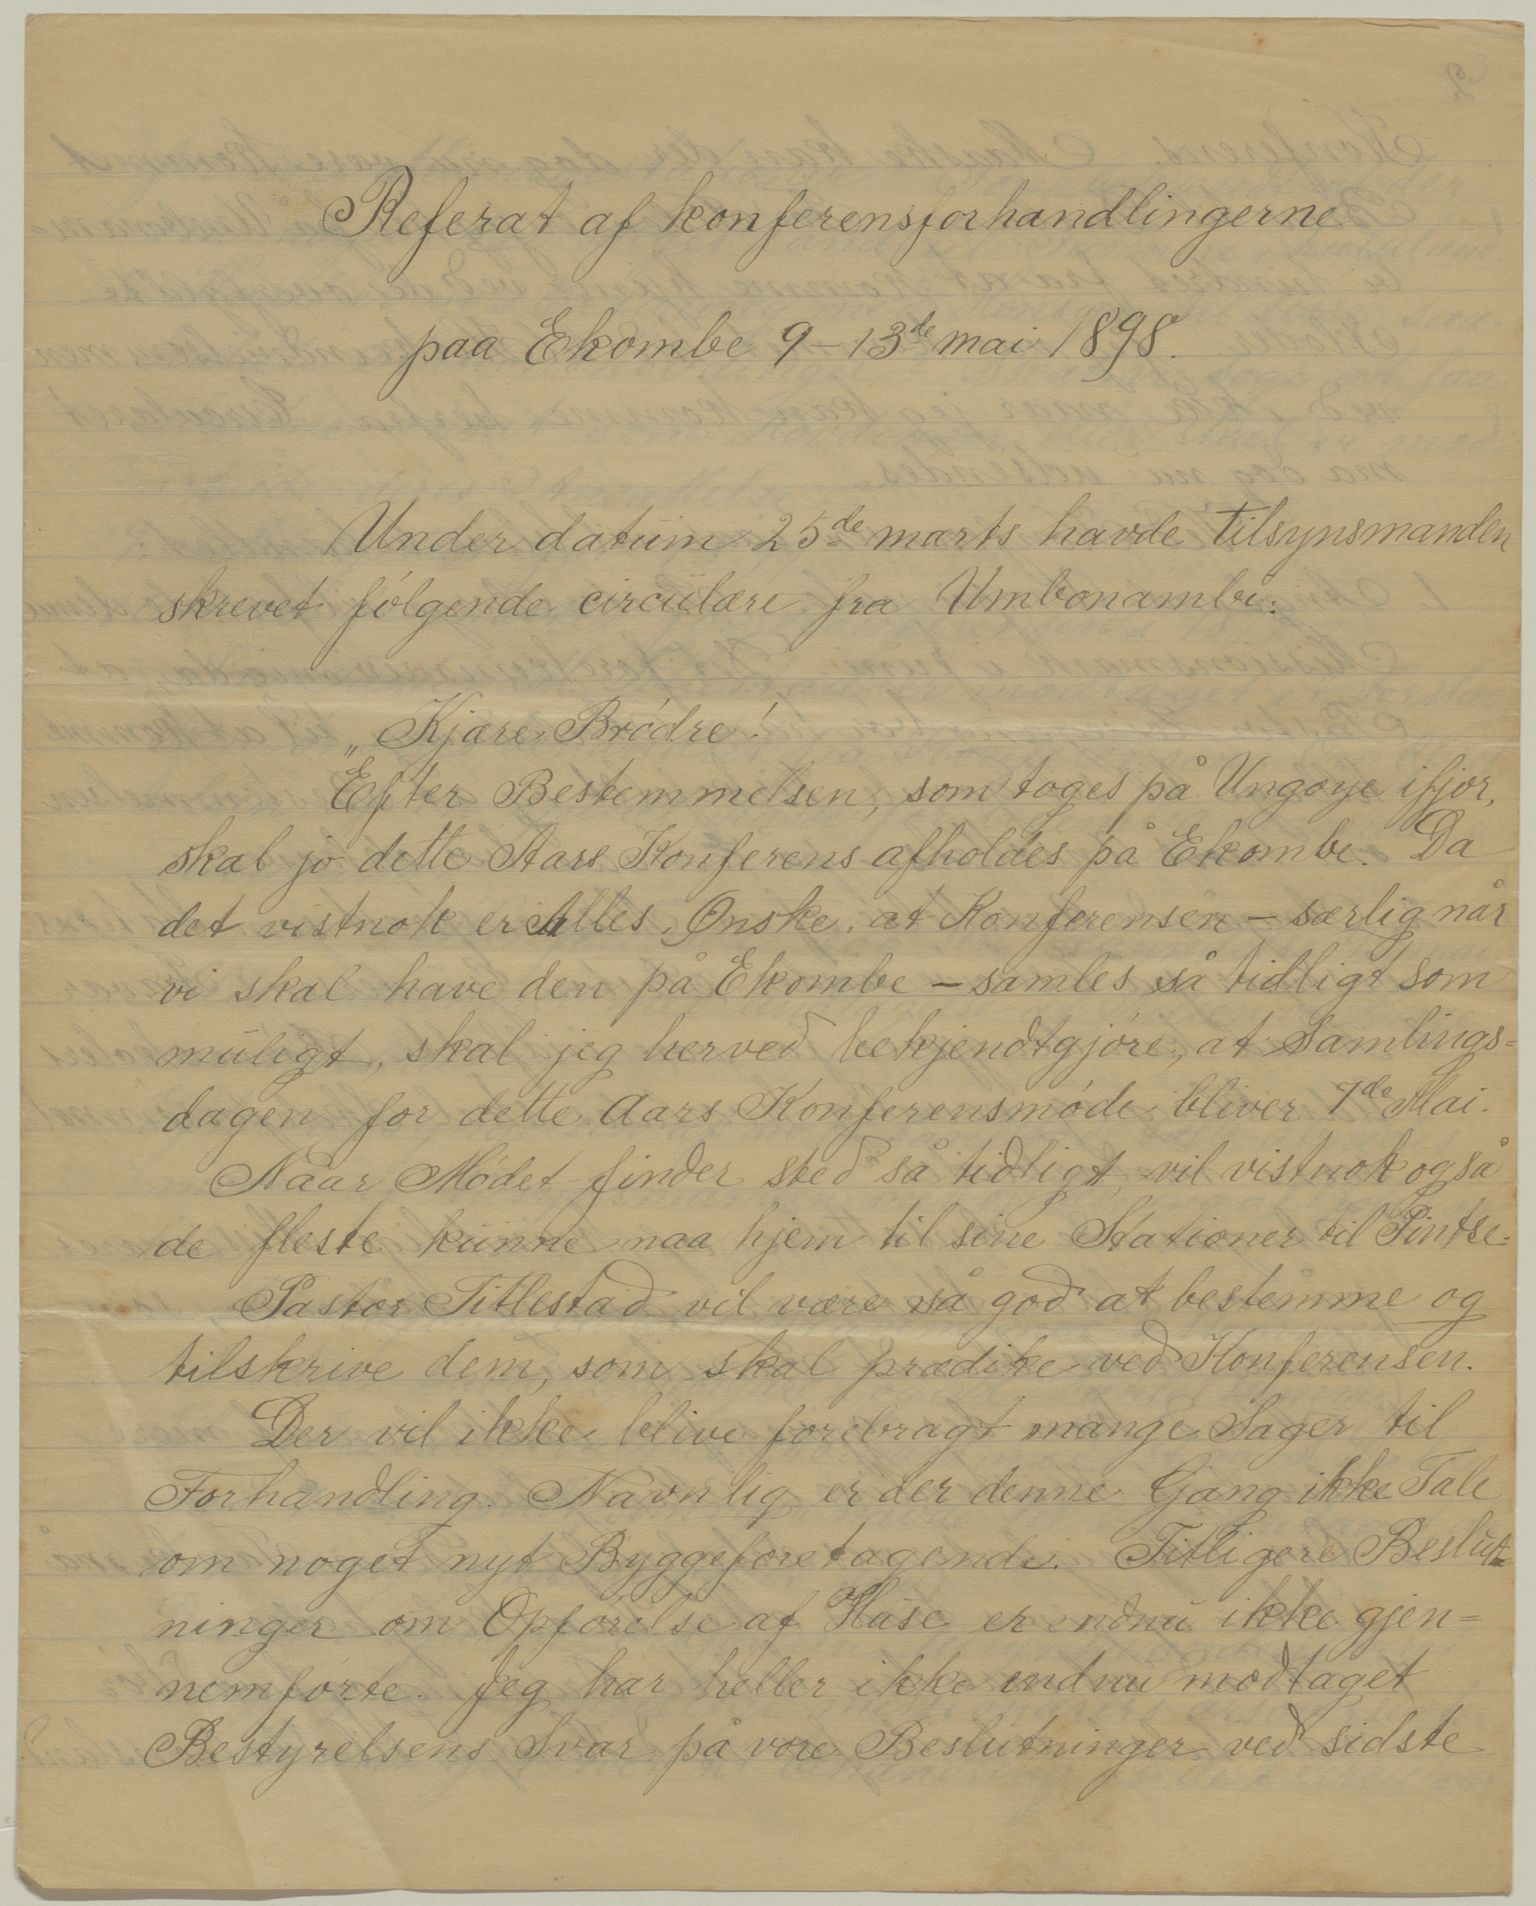 Referat af konferensforhandlingerne
paa Ekombe 9–13de mai 1898.
Under datum 25de marts havde tilsynsmanden
skrevet følgende circulære fra Umbonambi:
„Kjære Brødre!
Efter Bestemmelsen, som toges på Ungoye ifjor,
skal jo dette Aars Konferens afholdes på Ekombe. Da
det vistnok er Alles Ønske, at Konferensen – særlig når
vi skal have den på Ekombe – samles så tidligt som
muligt, skal jeg herved bekjendtgjøre, at Samlings=
dagen for dette Aars Konferensmøde bliver 7de Mai.
Naar Mødet finder sted så tidligt, vil vistnok også
de fleste kunne naa hjem til sine Stationer til Pintse.
Pastor Titlestad vil være så god at bestemme og
tilskrive dem, som skal prædike ved Konferensen.
Der vil ikke blive forebragt mange Sager til
Forhandling. Navnlig er der denne Gang ikke Tale
om noget nyt Byggeforetagende. Tidligere Beslut=
ninger om Opførelse af Huse er endnu ikke gjen=
nemførte. Jeg har heller ikke endnu modtaget
Bestyrelsens Svar på vore Beslutninger ved sidste